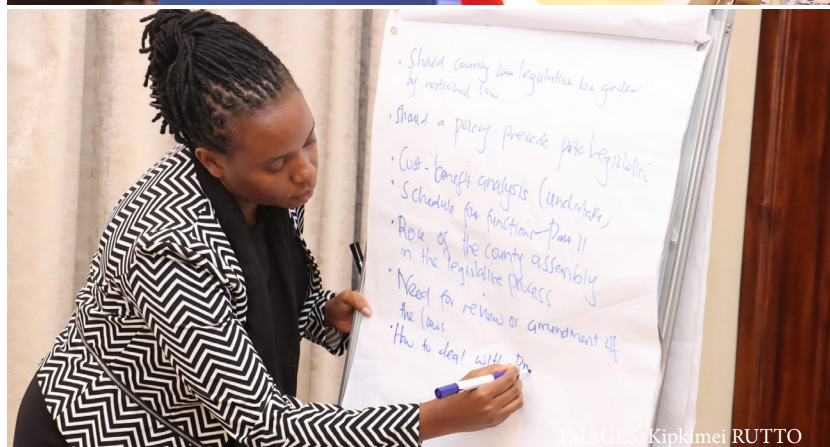 • Should county law legislation be guided
by national law
• Should a policy precede legislation
• Cost-benefit analysis (undertake)
• Schedule four functions Part II
• Role of the county assembly
in the legislative process
• Need for review or amendment of
the laws
• How to deal with
IMAGES: Kipkimei RUTTO